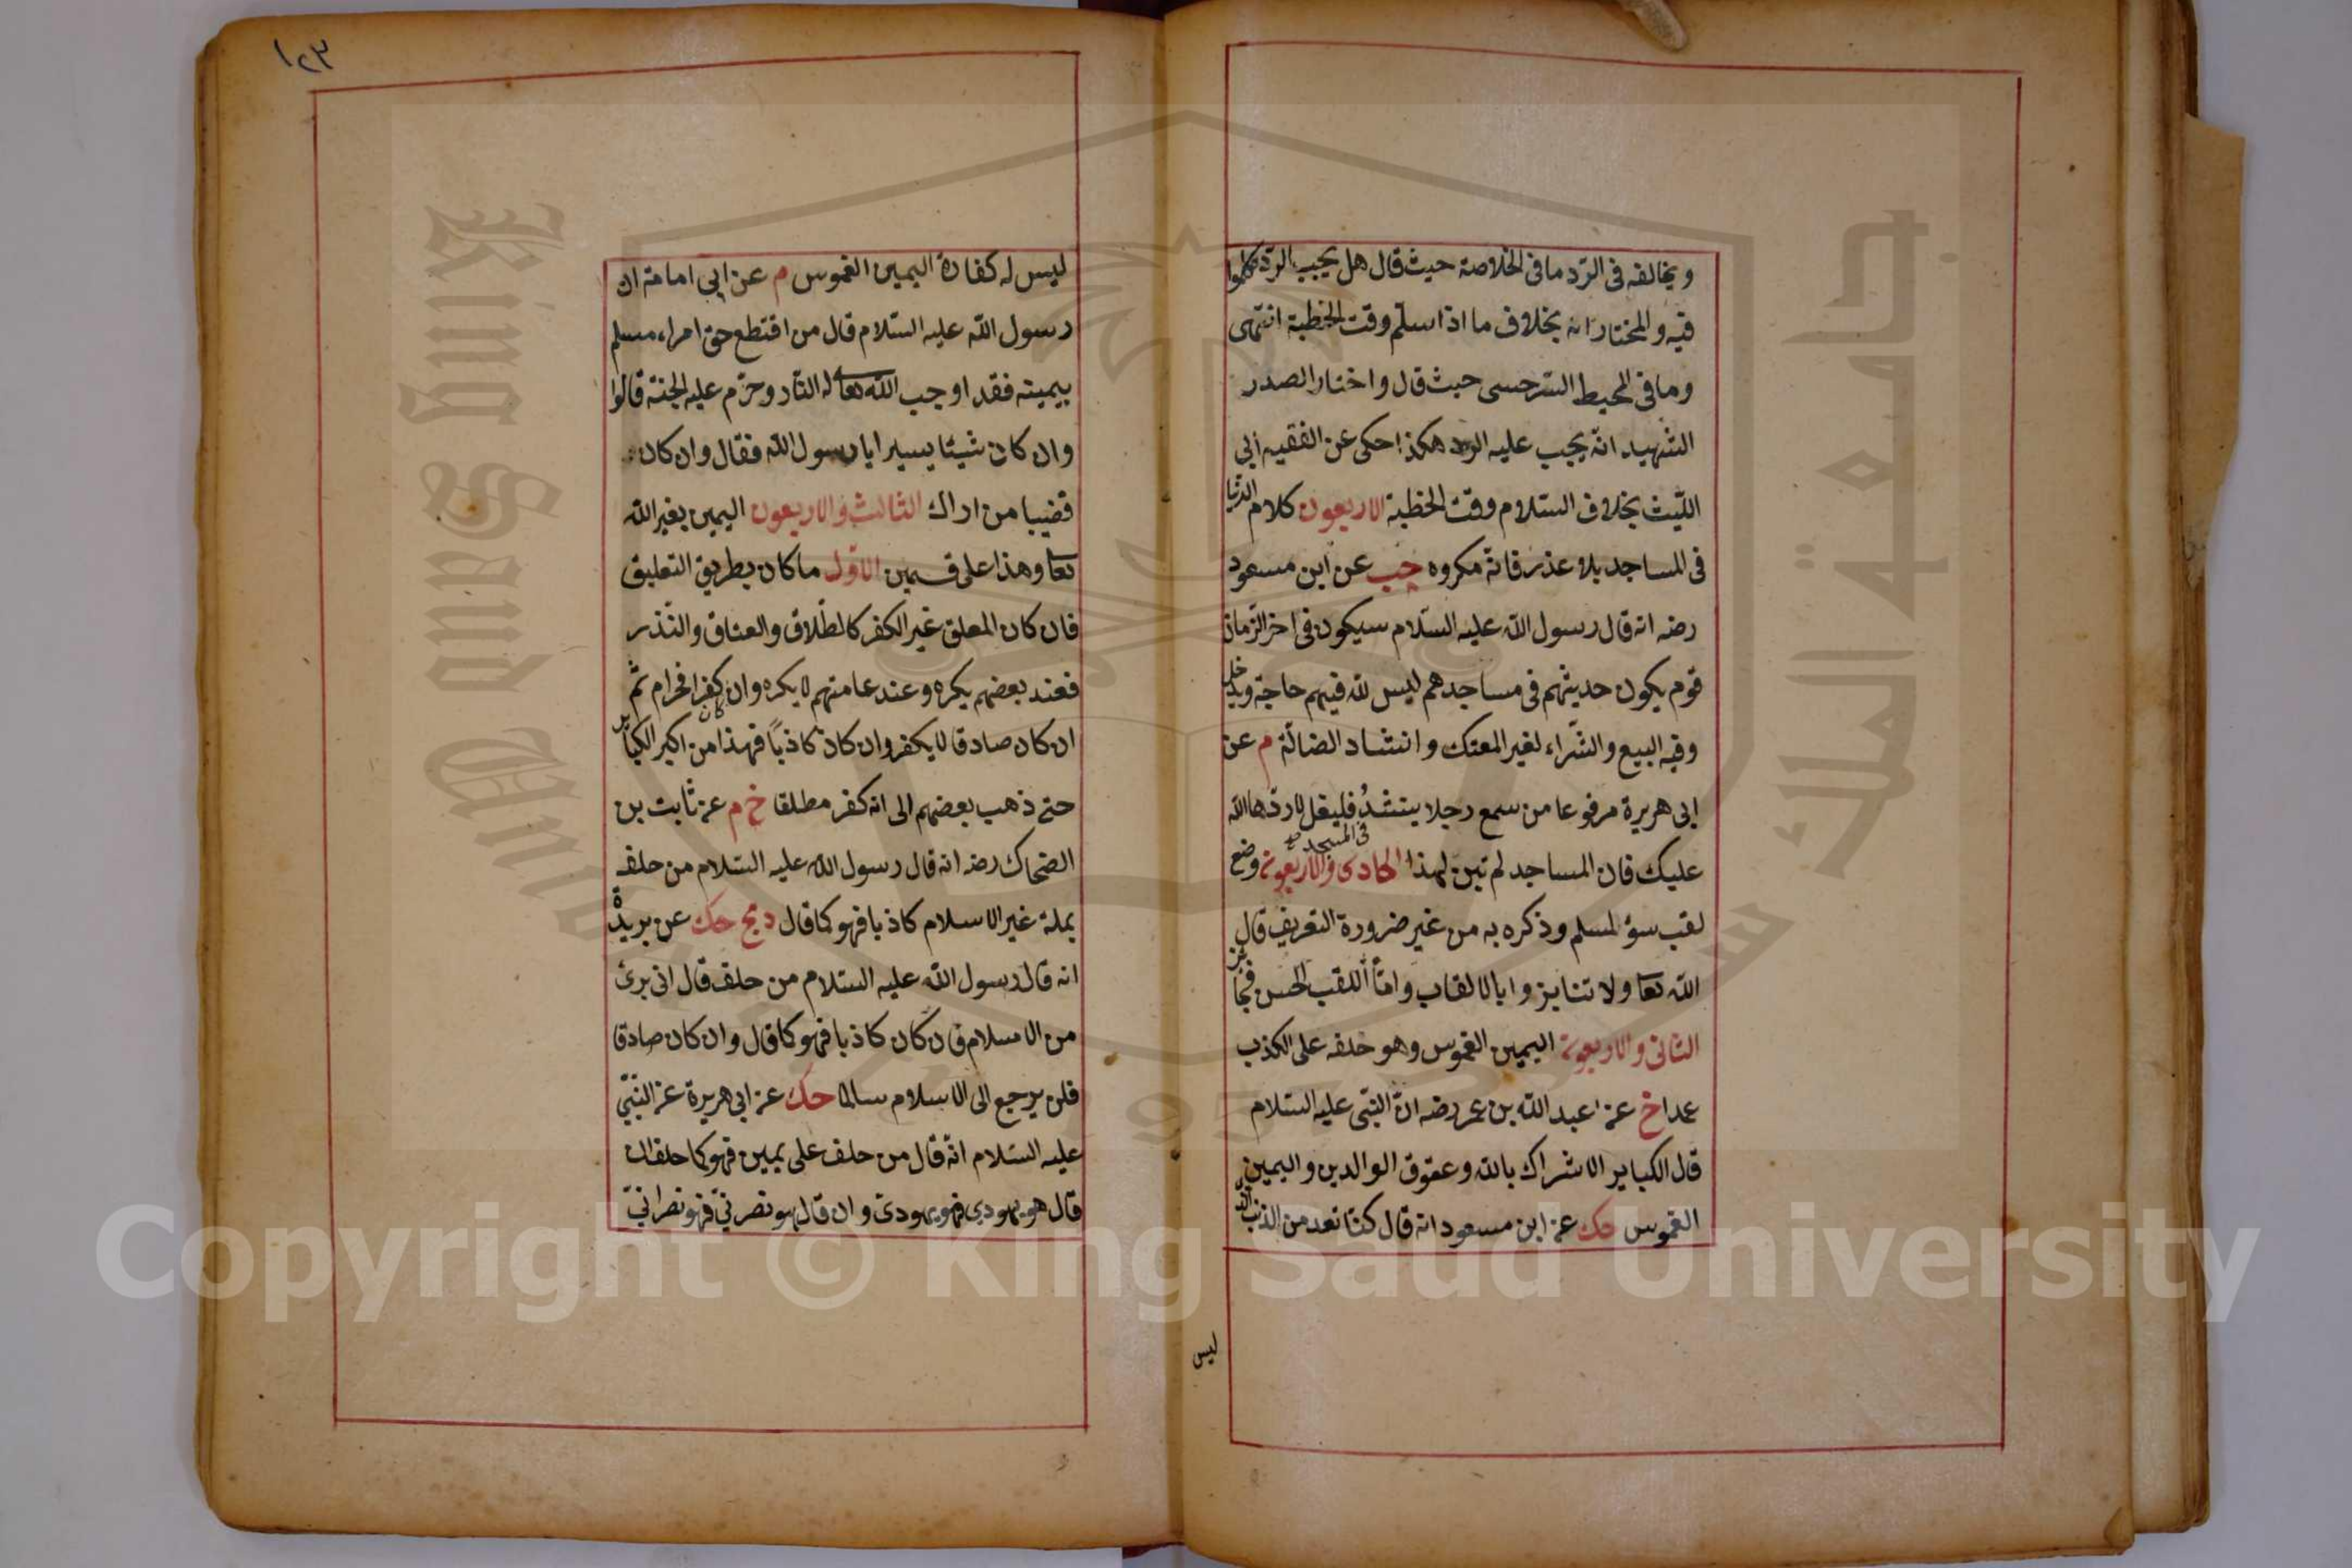 ويخالفه فى الرّد ما فى الخلاصة حيث قال هل يجب الرّد تكلموا
فيه والمختار انه بخلاف ما اذا سلّم وقت الخطبة انتهى
وما فى المحيط السرخسى حيث قال واختار الصدر
الشهيد انّه يجب عليه الرد هكذا حكى عن الفقيه ابى
اللّيث بخلاف السّلام وقت الخطبة الاربعون كلام الدنيا
فى المساجد بلا عذر فانّه مكروه حب عن ابن مسعود
رضه انه قال رسول اللّه عليه السّلام سيكون فى اخر الزّمان
قوم يكون حديثهم فى مساجدهم ليس للّه فيهم حاجة ويدخل
وفيه البيع والشّراء لغير المعتكف وانشاد الضالّة م عن
ابى هريرة مرفوعا من سمع رجلا ينشدُ فليقل لا ردّها اللّه
فى المسجد صح
عليك فان المساجد لم تبن لهذا الحادى والاربعون وضع
لقب سوء لمسلم وذكره به من غير ضرورة التعريف قال
اللّه تعا ولا تنابزوا بالالقاب وامّا اللقب الحسن فجائز
الثانى والاربعون اليمين الغموس وهو حلفه على الكذب
عدا خ عن عبد اللّه بن عمر رضه انّ النّبى عليه السّلام
قال الكباير الاشراك باللّه وعقوق الوالدين واليمين
الغموس حك عن ابن مسعود انه قال كنّا نعد من الذنب الذى
ليس
١٢٣
ليس له كفارة اليمين الغموس م عن ابى امامة ان
رسول اللّه عليه السّلام قال من اقتطع حق امراء مسلم
بيمينه فقد اوجب اللّه تعا له النّار وحرّم عليه الجنة قالوا
وان كان شيئا يسيرا يا رسول اللّه فقال وان كان
قضيبا من اراك الثالث والاربعون اليمين بغير اللّه
تعا وهذا على قسمين الاوّل ما كان بطريق التعليق
فان كان المعلق غير الكفر كالطّلاق والعتاق والنّذر
فعند بعضهم يكره وعند عامتهم لا يكره وان كان كفرا فحرام ثم
ان كان صادقا لا يكفر وان كان كاذبًا فهذا من اكبر الكباير
حتى ذهب بعضهم الى انه كفر مطلقا خ م عن ثابت بن
الضحاك رضه انه قال رسول اللّه عليه السّلام من حلف
بملة غير الاسلام كاذبا فهو كما قال د مج حك عن بريدة
انه قال رسول اللّه عليه السّلام من حلف قال انى برئ
من الاسلام فان كان كاذبا فهو كما قال وان كان صادقا
فلن يرجع الى الاسلام سالما حك عن ابى هريرة عن النّبىّ
عليه السّلام انّه قال من حلف على يمين فهو كما حلف ان
قال هو يهودى فهو يهودىّ وان قال هو نصرنىّ فهو نصرانىّ
جامعة الملك سعود
King Saud University
1957
Copyright © King Saud University